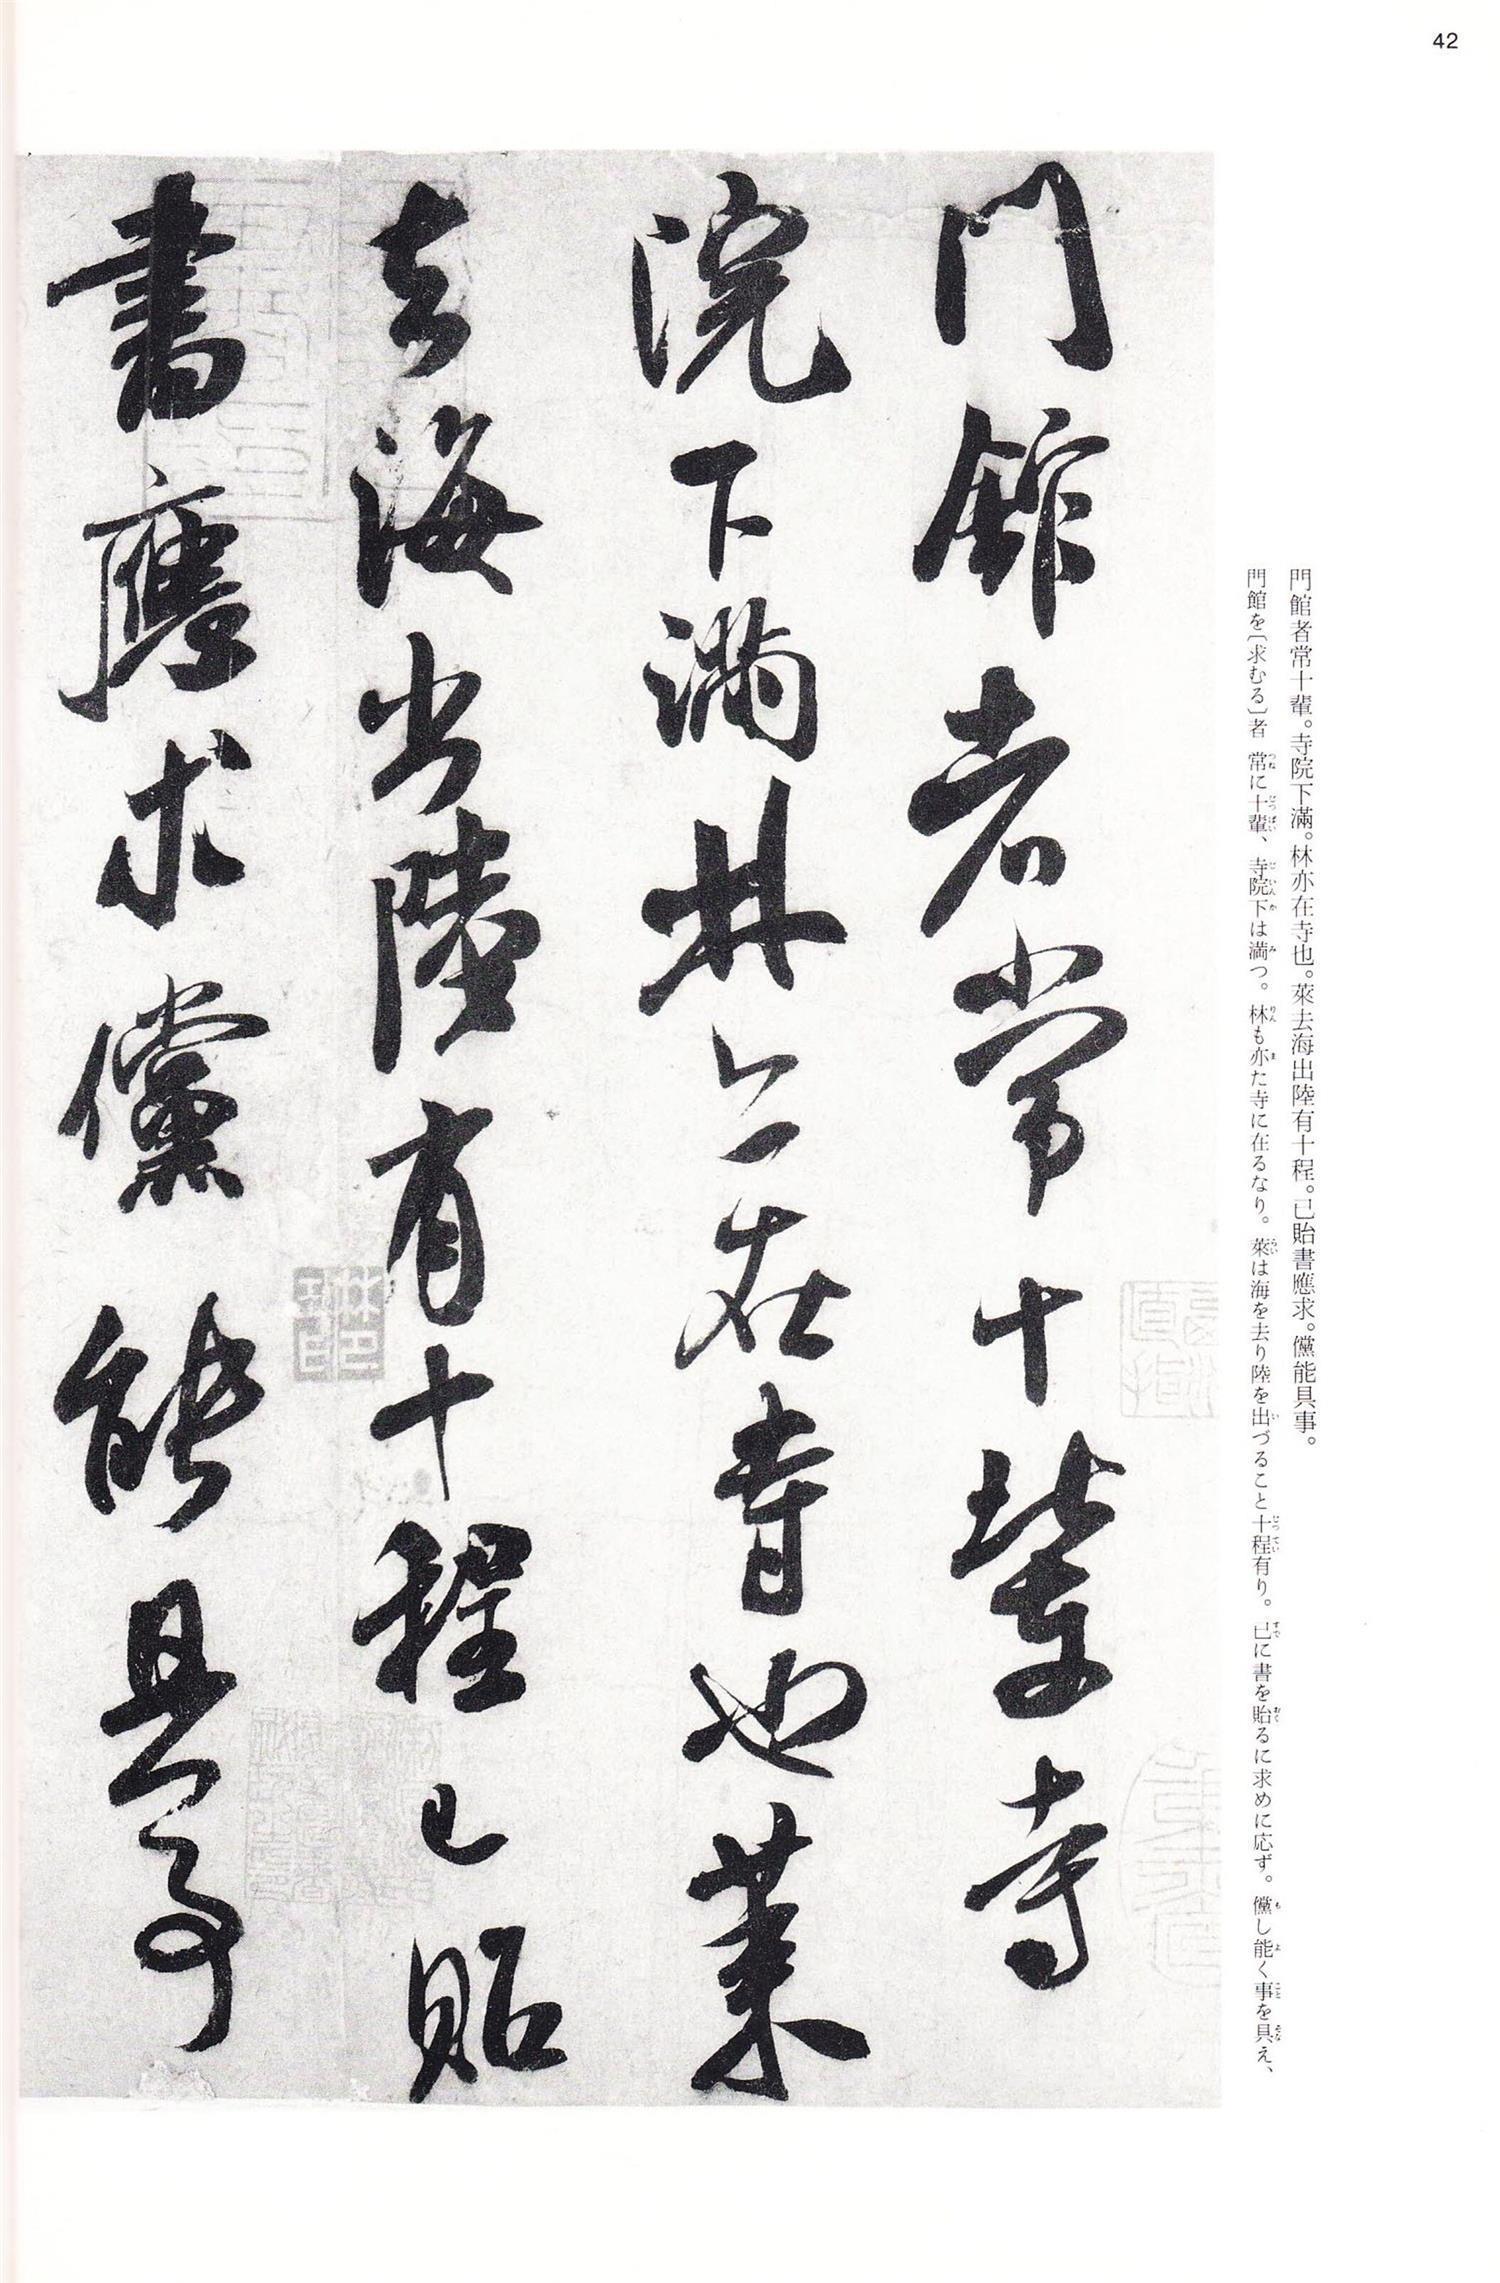 42
門館者常十輩。寺院下滿。林亦在寺也。萊去海出陸有十程。已貽書應求。儻能具事。
門館を〔求むる〕者 常に十輩、寺院下は満つ。林も亦た寺に在るなり。萊は海を去り陸を出づること十程有り。已に書を貽るに求めに応ず。儻し能く事を具え、
門館者常十輩寺
院下滿林亦在寺也萊
去海出陸有十程已貽
書應求儻能具事